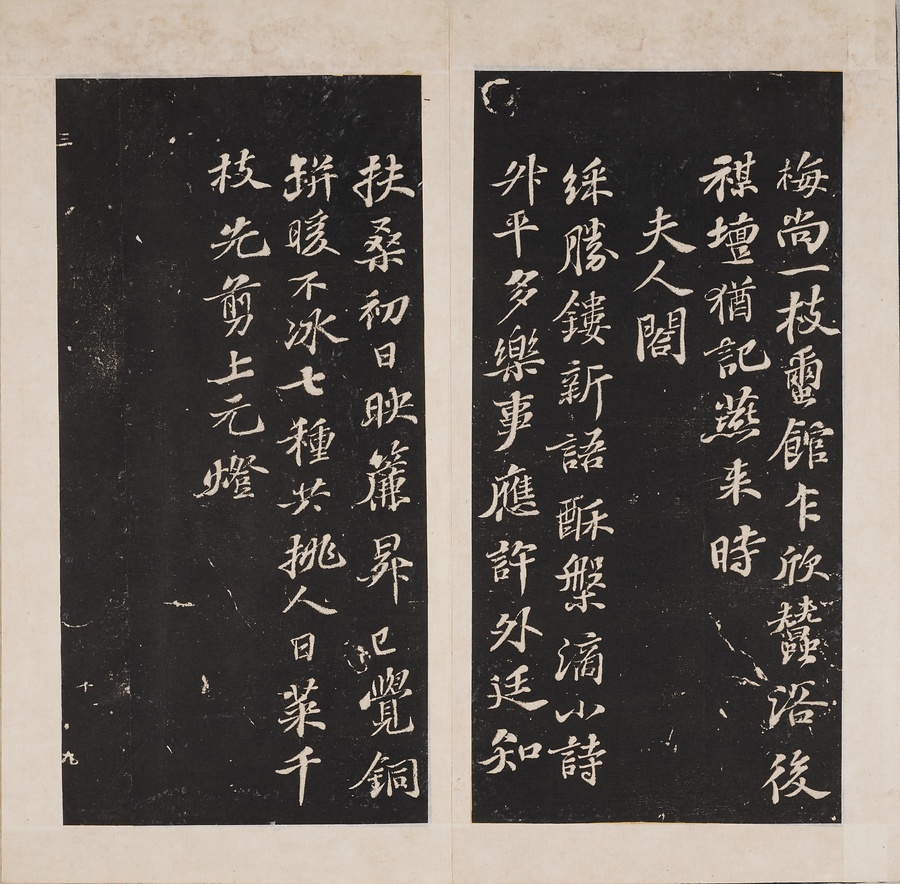 梅尚一枝蠒館乍欣蠶浴後
禖壇猶記燕来時
夫人閤
綵勝鏤新語酥槃滴小詩
升平多樂事應許外廷知
扶桑初日映簾昇已覺銅
缾暖不冰七種共挑人日菜千
枝先剪上元燈
三
九